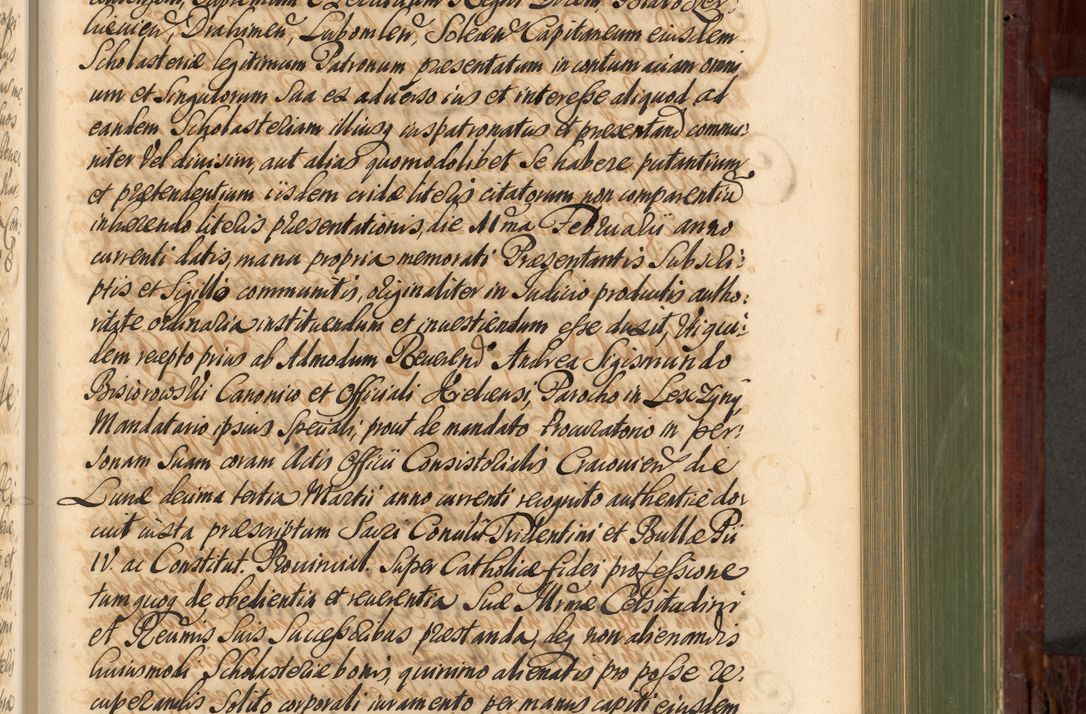 lucien, Drahimen, Lubomlen, Solcen Capitaneum eiusdem
Scholasteriæ legitimum Patronum præsentatum in contumaciam omni
um et singulorum sua ex adverso ius et interesse aliquod ad
eandem Scholasteriam illiusq iuspatronatus et presentand commu
niter vel divisim, aut alias quomodolibet se habere putantium
et prætendentium iisdem cridæ literis citatorum non comparentiu
inhærendo literis præsentationis, die 11ma Februarii anno
currenti datis, manu propria memorati Præsentantis subscri:
ptis et Sigillo communitis, originaliter in Judicio productis autho:
ritate ordinaria instituendum et investiendum esse duxit, Utiqui:
dem recepto prius ab Admodum Reverend Andrea Sigismundo
Canonico et Officiali Kielcensi, Parocho in Leszczyny
Mandatario ipsius speciali, prout de mandato Procuratorio in per:
sonam suam coram Actis Officii Consistorialis Cracovien die
Lunæ decima tertia Martii anno currenti recognito authenticè do
cuit iuxta præscriptum Sacri Concilii Tridentini et Bullæ Pii
IV. ac Constitut. Provincial. super Catholicæ fidei professione
tum quoq de obedientia et reverentia Suæ Illmæ Celsitudini
et Reumis suis Successoribus præstanda, deq non alienandis
huiusmodi Scholasteriæ bonis, quinimo alienatis pro posse re:
cuperandis solito corporali iuramento per manus capiti eiusdem